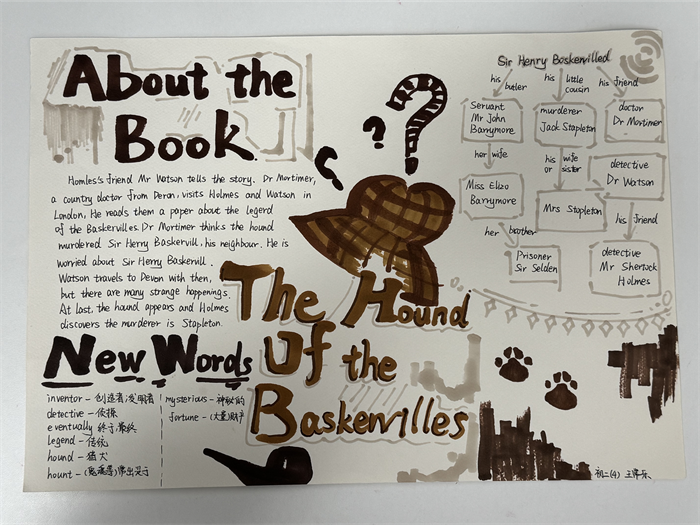 About the
Book
Homles's friend Mr Watson tells the story. Dr Mortimer,
a country doctor from Deran, visits Holmes and Watson in
London, He reads them a paper about the legerd
of the Baskervilles. Dr Mortimer thinks the hound
murdered Sir Herry Baskervill, his neighbour. He is
worried about Sir Herry Baskervill.
Watson travels to Devon with then,
but there are many strange happenings.
At last, the hound appears and Holmes
discovers the murderer is Stapleton.
New Words
inventor - 创造者/发明者
detective - 侦探
eventually 终于/最终
legend - 传统
hound - 猛犬
hount - (鬼魂等)常出没于
mysterious - 神秘的
fortune - (大量)财产
The Hound
Of the
Baskervilles
Sir Henry Baskervilled
his butler
his little cousin
his friend
Servant
Mr John
Barrymore
murderer
Jack Stapleton
doctor
Dr Mortimer
her wife
his wife
or sister
detective
Dr Watson
Miss Eliza
Barrymore
Mrs Stapleton
his friend
her brother
Prisoner
Sir Selden
detective
Mr Sherlock
Holmes
初二(4)